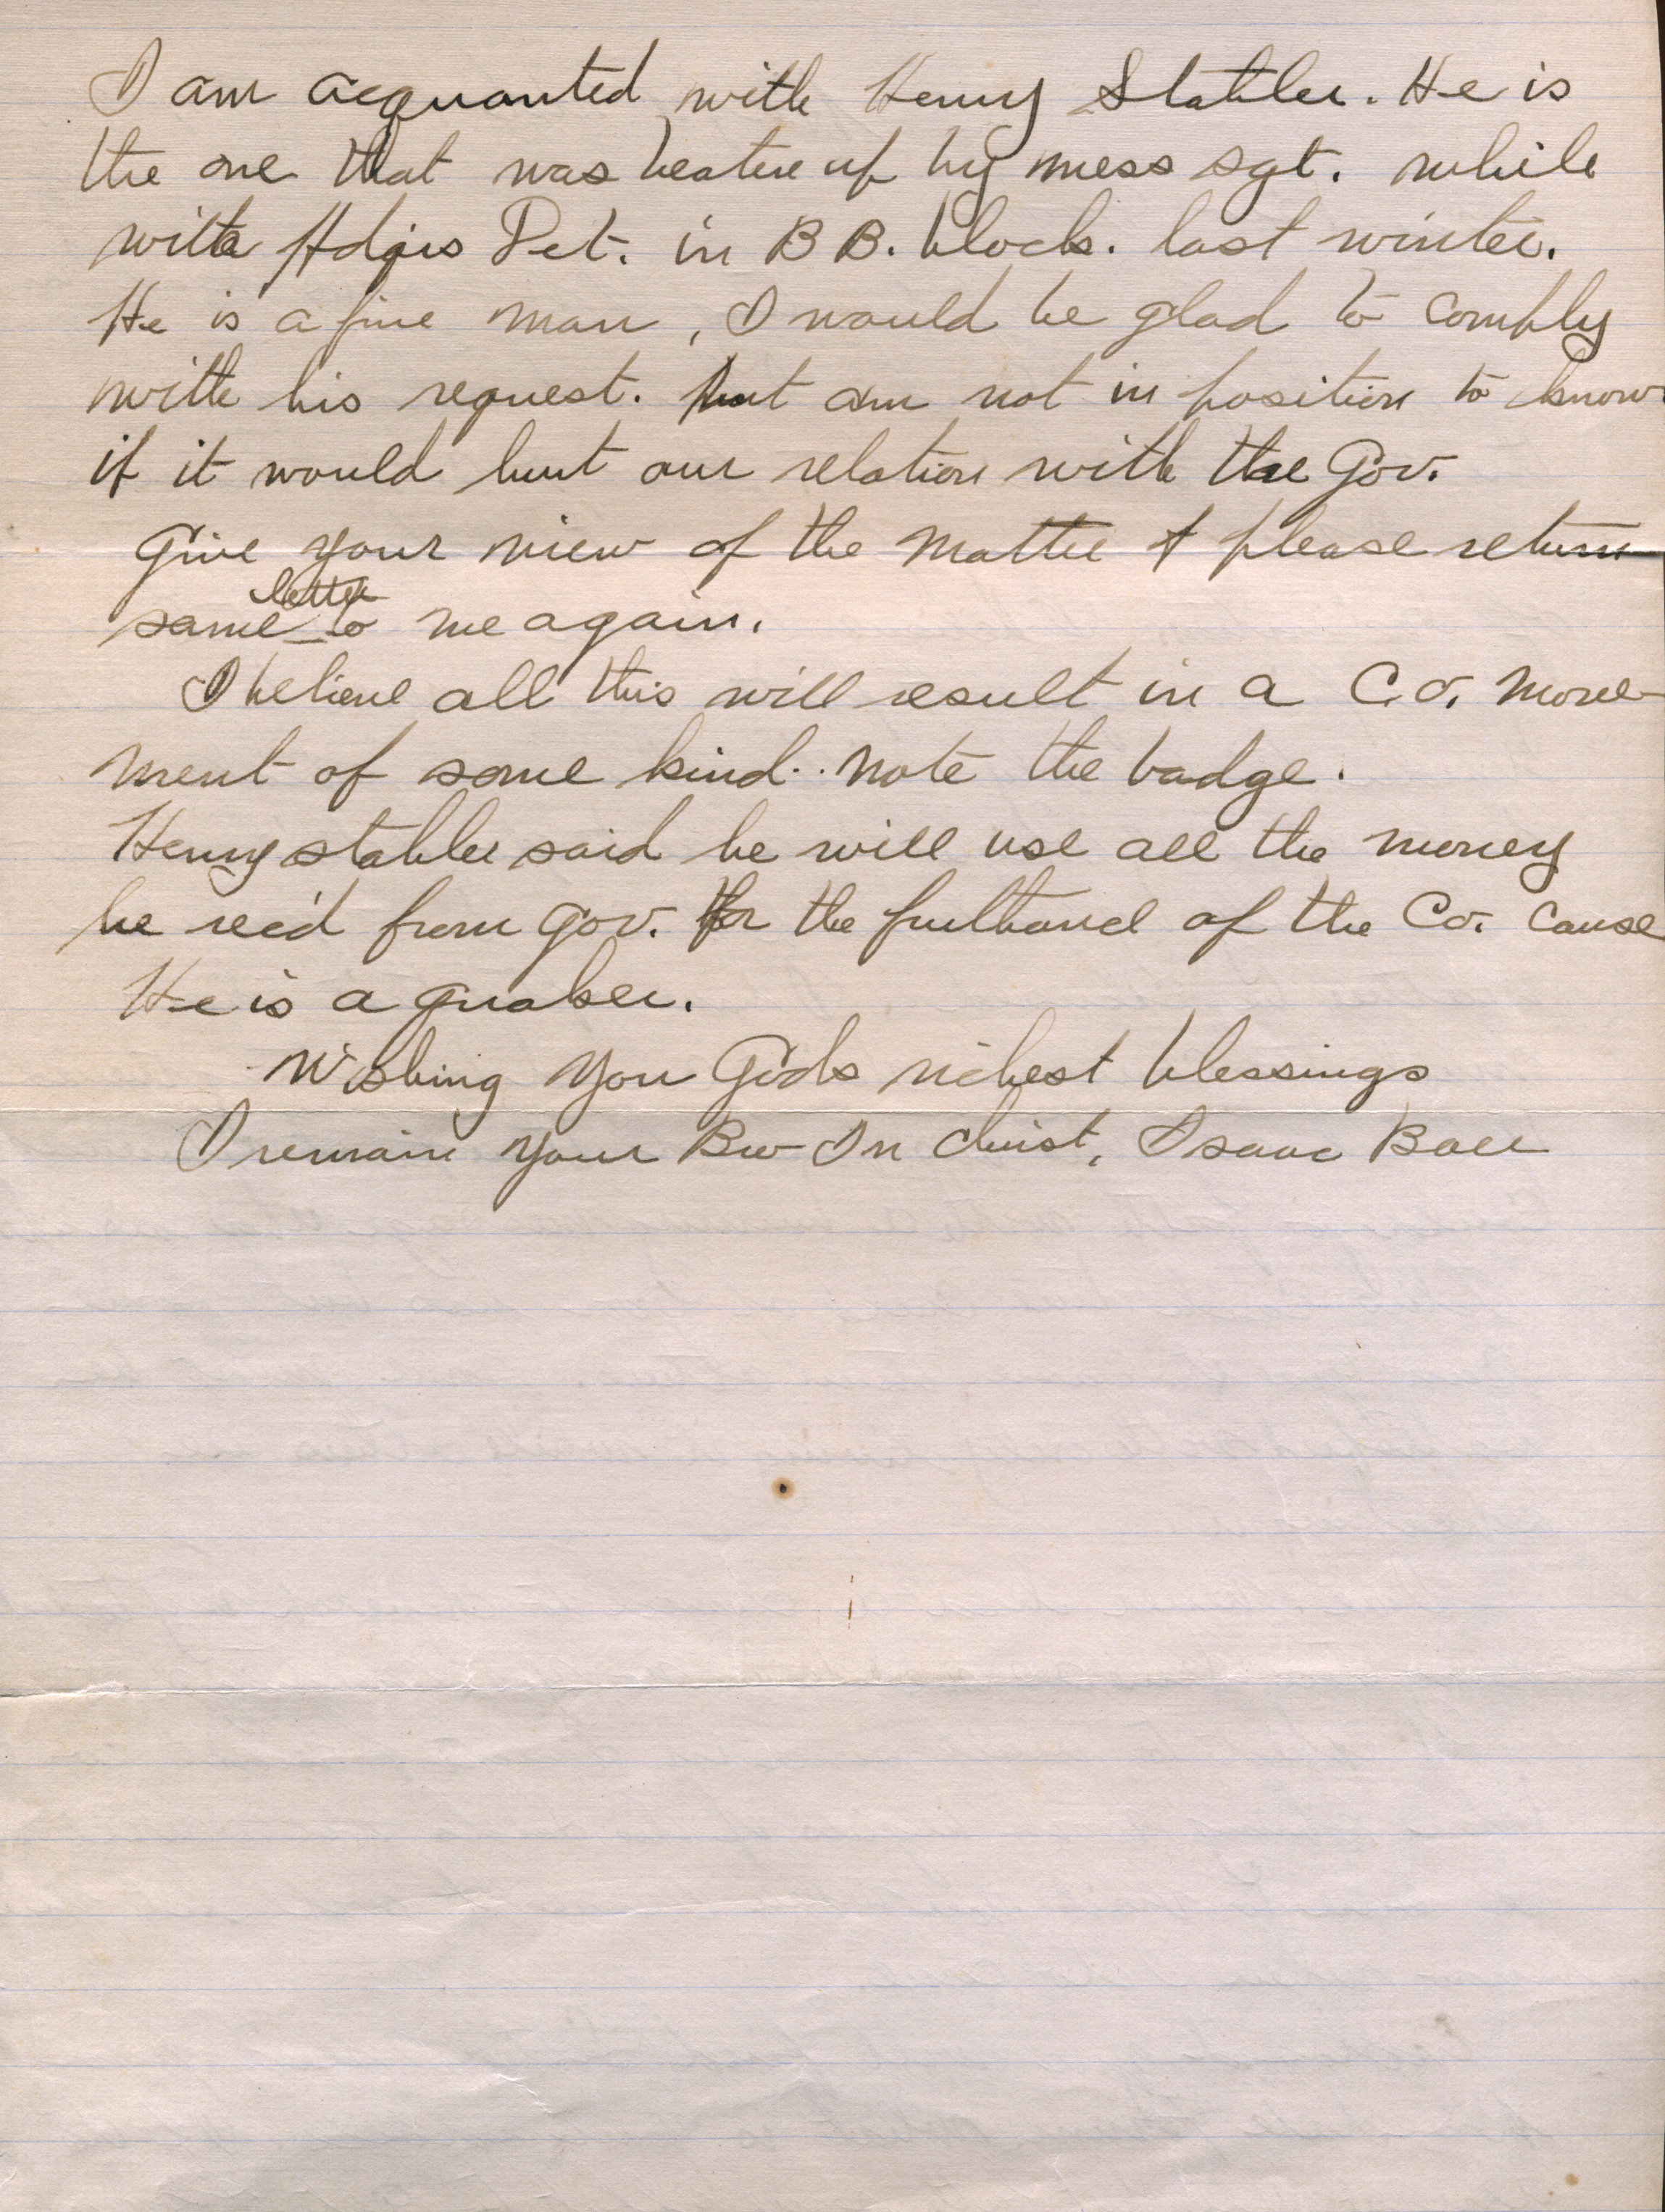 I am acquanted with Henry Stabler. He is
the one that was beaten up by mess sgt. while
with Hdqrs Det. in B B. block. last winter.
He is a fine man, I would be glad to comply
with his request. but am not in position to know
if it would hurt our relation with the Gov.
Give your view of the matter & please return
same letter to me again.
I believe all this will result in a C.O. move-
ment of some kind. note the badge.
Henry stabler said he will use all the money
he rec'd from Gov. for the furthance of the Co. cause
He is a quaker.
Wishing you Gods richest blessings
I remain your Bro In Christ, Isaac Baer